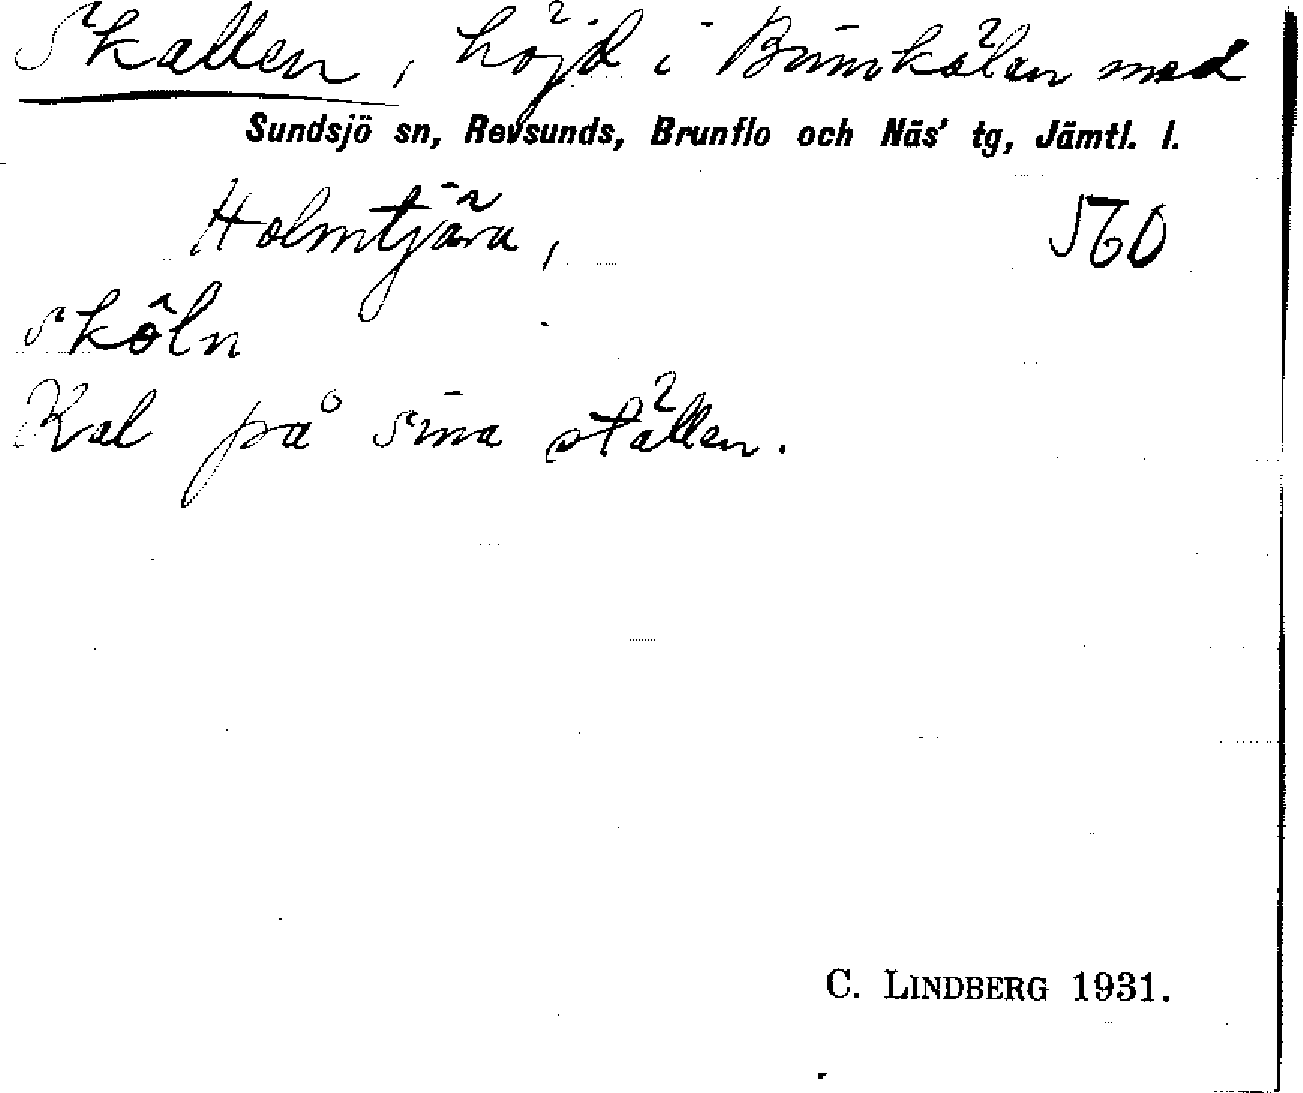 Skallen, höjd i Binnkölen med
Sundsjö sn, Revsunds, Brunflo och Näs' tg, Jämtl. l.
Holmtjärn, 560
sköln
Kal på sina ställen.
C. LINDBERG 1931.